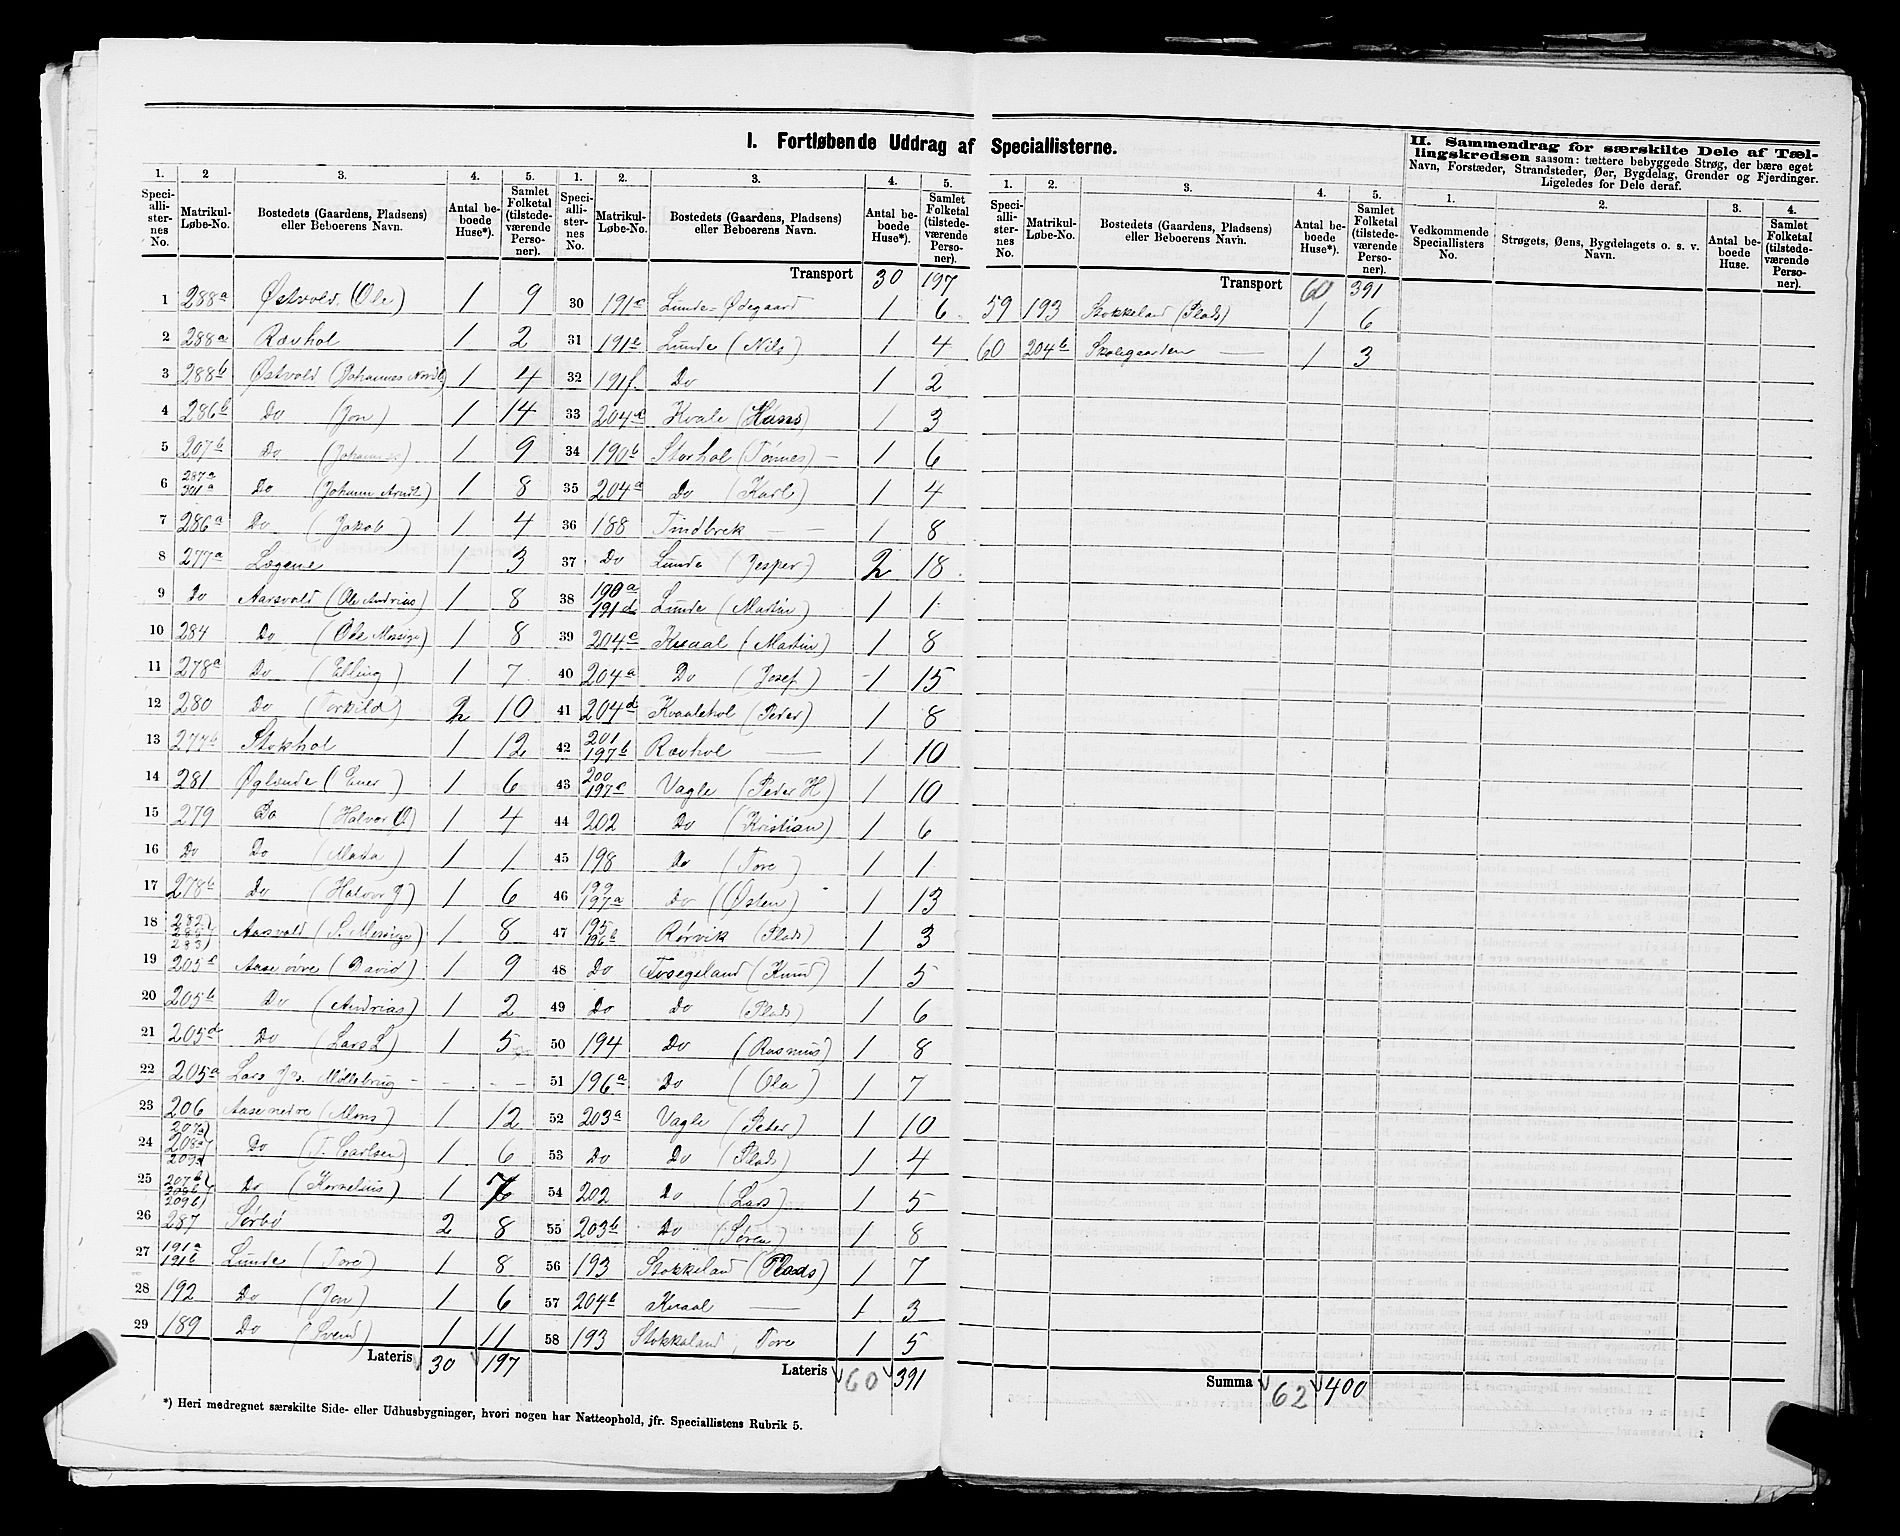 I. Fortløbende Uddrag af Speciallisterne.
II. Sammendrag for særskilte Dele af Tæl-
lingskredsen saasom: tættere bebyggede Strøg, der bære eget
Navn, Forstæder, Strandsteder, Øer, Bygdelag, Grender og Fjerdinger.
Ligeledes for Dele deraf.
1. 2 3. 4. 5.
Speciallisternes No. Matrikul-Løbe-No. Bostedets (Gaardens, Pladsens) eller Beboerens Navn. Antal beboede Huse*). Samlet Folketal (tilstedeværende Personer).
1 288a Østvold (Ole) 1 9
2 288a Rævhol 1 2
3 288b Østvold (Johannes Nordb) 1 4
4 286b Do (Jon) 1 14
5 207b Do (Johannes) 1 9
6 287a 301a Do (Johann Arndt) 1 8
7 286a Do (Jakob) 1 4
8 277a Lægene 1 3
9 Do Aarsvold (Ole Andrias) 1 8
10 284 Do (Ole Messige) 1 8
11 278a Do (Elling) 1 7
12 280 Do (Torkild) 2 10
13 277b Stokhol 1 12
14 281 Øglende (Ener) 1 6
15 279 Do (Halvor O) 1 4
16 Do Do (Mada) 1 1
17 278b Do (Halvor J) 1 6
18 282 283 Aarsvold (S. Messige) 1 8
19 205c Aase øvre (David) 1 9
20 205b Do (Andrias) 1 2
21 205d Do (Lars L) 1 5
22 205a Lars Js. Møllebrug - - - -
23 206 Aase nedre (Mons) 1 12
24 207a 208a 209a Do (T. Carlsen) 1 6
25 207b 208b 209b Do (Kornelius) 1 7
26 287 Sørbø 2 8
27 191a 191b Lunde (Tore) 1 8
28 192 Do (Jon) 1 6
29 189 Do (Svend) 1 11
Lateris 30 197
1. 2. 3. 4. 5.
Speciallisternes No. Matrikul-Løbe-No. Bostedets (Gaardens, Pladsens) eller Beboerens Navn. Antal beboede Huse*). Samlet Folketal (tilstedeværende Personer).
Transport 30 197
30 191c Lunde-Ødegaard 1 6
31 191e Lunde (Nils) 1 4
32 191f Do 1 2
33 204e Kvale (Hans) 1 3
34 190b Storhol (Tønnes) - 1 6
35 204a Do (Karl) 1 4
36 188 Tindbrek — 1 8
37 Do Lunde (Jesper) 2 18
38 190a 191d Lunde (Martin) 1 1
39 204c Kvaal (Martin) 1 8
40 204a Do (Josef) 1 15
41 204d Kvaalehol (Peder) 1 8
42 201 197b Rævhol — 1 10
43 200 197c Vagle (Peder H) 1 10
44 202 Do (Kristian) 1 6
45 198 Do (Tore) 1 1
46 199 197a Do (Østen) 1 13
47 195 196b Rørvik (Plads) 1 3
48 Do Fosegeland (Knud) 1 5
49 Do Do (Plads) 1 6
50 194 Do (Rasmus) 1 8
51 196a Do (Ola) 1 7
52 203a Vagle (Peter) 1 10
53 Do Do (Plads) 1 4
54 202 Do (Lars) 1 5
55 203b Do (Søren) 1 8
56 193 Stokkeland (Plads) 1 7
57 204b Kvaal — 1 3
58 193 Stokkeland, Tore 1 5
Lateris 60 391
1. 2. 3. 4. 5.
Speciallisternes No. Matrikul-Løbe-No. Bostedets (Gaardens, Pladsens) eller Beboerens Navn. Antal beboede Huse*). Samlet Folketal (tilstedeværende Personer).
Transport 60 391
59 193 Stokkeland (Plads) 1 6
60 204b Skolegaarden — 1 3
Summa 62 400
1. 2. 3. 4.
Vedkommende Speciallisters No. Strøgets, Øens, Bygdelagets o. s. v. Navn. Antal beboede Huse. Samlet Folketal (tilstedeværende Personer).
*) Heri medregnet særskilte Side- eller Udhusbygninger, hvori nogen har Natteophold, jfr. Speciallistens Rubrik 5.